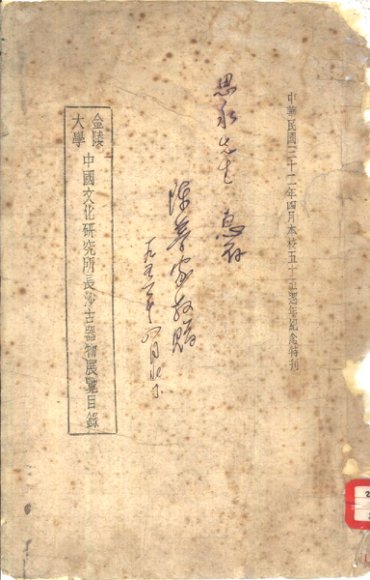 中華民國三十二年四月本校五十五週年紀念特刊
思永先生 惠存
陳夢家敬贈
一九五一年 月北京
金陵大學
中國文化研究所長沙古器物展覽目錄